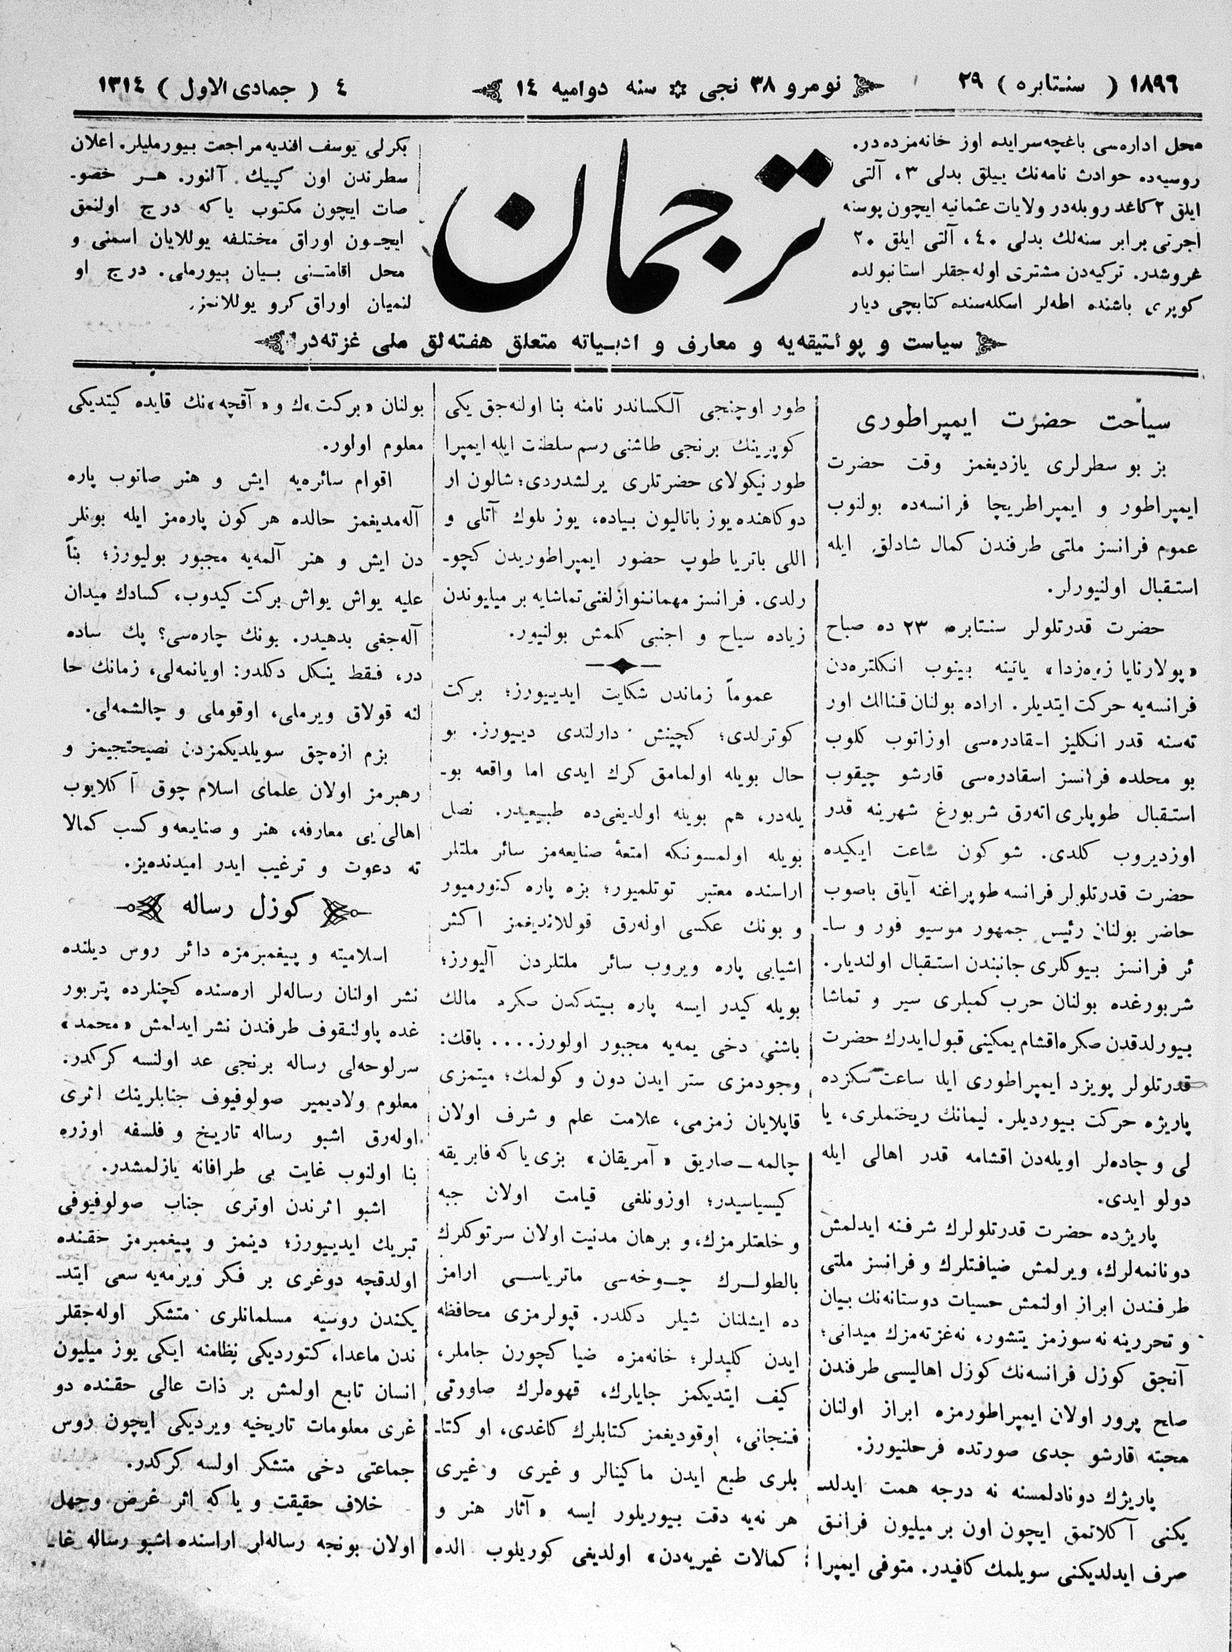 ١٨٩٦ ( سنتابره ) ٢٩
نومرو ٣٨ نجی ✲ سنه دواميه ١٤
٤ ( جمادی الاول ) ١٣١٤
محل اداره‌سی باغچه‌سرايده اوز خانه‌مزده‌در.
روسيه‌ده حوادث نامه‌نك ييللق بدلی ٣، آلتی
ايلق ٢ كاغد روبله‌در ولايات عثمانيه ايچون پوسته
اجرتی برابر سنه‌لك بدلی ٤٠، آلتی ايلق ٢٠
غروشدر. تركيه‌دن مشتری اوله‌جقلر استانبولده
كوپری باشنده اطه‌لر اسكله‌سنده كتابچی ديار
ترجمان
بكرلی يوسف افنديه مراجعت بيورمليلر. اعلان
سطرندن اون كپيك آلنور. هر خصو-
صات ايچون مكتوب ياكه درج اولنمق
ايچون اوراق مختلفه يوللايان اسمنی و
محل اقامتنی بيان بيورملی. درج او
لنميان اوراق كرو يوللانمز.
سياست و پوليتيقه‌يه و معارف و ادبياته متعلق هفته‌لق ملی غزته‌در
سياحت حضرت ايمپراطوری
بز بو سطرلری يازديغمز وقت حضرت
ايمپراطور و ايمپراطريچا فرانسه‌ده بولنوب
عموم فرانسز ملتی طرفندن كمال شادلق ايله
استقبال اولنيورلر.
حضرت قدرتلولر سنتابره ٢٣ ده صباح
«پولارنايا زوه‌زدا» ياتينه بينوب انكلتره‌دن
فرانسه‌يه حركت ايتديلر. اراده بولنان قنالك اور
ته‌سنه قدر انكليز اسقادره‌سی اوزاتوب كلوب
بو محلده فرانسز اسقادره‌سی قارشو چيقوب
استقبال طوپلری اته‌رق شربورغ شهرينه قدر
اوزديروب كلدی. شو كون ساعت ايكيده
حضرت قدرتلولر فرانسه طوپراغنه آياق باصوب
حاضر بولنان رئيس جمهور موسيو فور و سا-
ئر فرانسز بيوكلری جانبندن استقبال اولنديلر.
شربورغده بولنان حرب كميلری سير و تماشا
بيورلدقدن صكره اقشام يمكينی قبول ايدرك حضرت
قدرتلولر پويزد ايمپراطوری ايله ساعت سكزده
پاريژه حركت بيورديلر. ليمانك ريختملری، يا
لی و جاده‌لر اويله‌دن اقشامه قدر اهالی ايله
دولو ايدی.
پاريژده حضرت قدرتلولرك شرفنه ايدلمش
دونانمه‌لرك، ويرلمش ضيافتلرك و فرانسز ملتی
طرفندن ابراز اولنمش حسيات دوستانه‌نك بيان
و تحررينه نه سوزمز يتشور، نه غزته‌مزك ميدانی؛
آنجق كوزل فرانسه‌نك كوزل اهاليسی طرفندن
صلح پرور اولان ايمپراطورمزه ابراز اولنان
محبته قارشو جدی صورتده فرحلنيورز.
پاريژك دونادلمسنه نه درجه همت ايدلد-
يكنی آكلاتمق ايچون اون بر ميليون فرانق
صرف ايدلديكنی سويلمك كافيدر. متوفی ايمپرا
طور اوچنجی آلكساندر نامنه بنا اولنه‌جق يكی
كوپرينك برنجی طاشنی رسم سلطنت ايله ايمپرا
طور نيكولای حضرتلری يرلشدردی؛ شالون ار
دوكاهنده يوز باتاليون بياده، يوز بلوك آتلی و
اللی باتريا طوپ حضور ايمپراطوريدن كچو-
رلدی. فرانسز مهماننوازلغنی تماشايه بر ميليوندن
زياده سياح و اجنبی كلمش بولنيور.
عموماً زماندن شكايت ايدييورز؛ بركت
كوترلدی؛ كچينش دارلندی دييورز. بو
حال بويله اولمامق كرك ايدی اما واقعه بو-
يله‌در، هم بويله اولديغی‌ده طبيعيدر. نصل
بويله اولمسونكه امتعهٔ صنايعه‌مز سائر ملتلر
اراسنده معتبر توتلميور؛ بزه پاره كتورميور
و بونك عكسی اوله‌رق قوللانديغمز اكثر
اشيايی پاره ويروب سائر ملتلردن آليورز؛
بويله كيدر ايسه پاره بيتدكدن صكره مالك
باشنی دخی يمه‌يه مجبور اولورز.... باقك:
وجودمزی ستر ايدن دون و كولمك؛ ميتمزی
قاپلايان زمزمی، علامت علم و شرف اولان
چالمه — صاريق «آمريقان» بزی ياكه فابريقه
كيسياسيدر؛ اوزونلغی قيامت اولان جبه
و خلعتلرمزك، و برهان مدنيت اولان سرتوكلرك
بالطولرك چوخه‌سی ماترياسی ارامز
ده ايشلنان شيلر دكلدر. قپولرمزی محافظه
ايدن كليدلر؛ خانه‌مزه ضيا كچورن جاملر،
كيف ايتديكمز جايلرك، قهوه‌لرك صاورتی
فنجانی، اوقوديغمز كتابلرك كاغدی، او كتا-
بلری طبع ايدن ماكينالر و غيری و غيری
هر نه‌يه دقت بيوريلور ايسه «آثار هنر و
كمالات غيريه‌دن» اولديغی كوريلوب الده
بولنان «بركت»ك و «آقچه»نك قايده كيتديكی
معلوم اولور.
اقوام سائره‌يه ايش و هنر صاتوب پاره
آله‌مديغمز حالده هر كون پاره‌مز ايله بونلر
دن ايش و هنر آلمه‌يه مجبور بوليورز؛ بنأ
عليه يواش يواش بركت كيدوب، كسادك ميدان
آله‌جغی بدهيدر. بونك چاره‌سی؟ پك ساده
در، فقط ينكل دكلدر: اويانمه‌لی، زمانك حا
لنه قولاق ويرملی، اوقوملی و چالشمه‌لی.
بزم ازه‌چق سويلديكمزدن نصيحتجيمز و
رهبرمز اولان علمای اسلام چوق آكلايوب
اهالی‌يی معارفه، هنر و صنايعه و كسب كمالا
ته دعوت و ترغيب ايدر اميدنده‌يز.
كوزل رساله
اسلاميته و پيغمبرمزه دائر روس ديلنده
نشر اولنان رساله‌لر اره‌سنده كچنلرده پتربور
غده پاولنقوف طرفندن نشر ايدلمش «محمد»
سرلوحه‌لی رساله برنجی عد اولنسه كركدر.
معلوم ولاديمير صولوفيوف جنابلرينك اثری
اوله‌رق اشبو رساله تاريخ و فلسفه اوزره
بنا اولنوب غايت بی طرافانه يازلمشدر.
اشبو اثرندن اوتری جناب صولوفيوفی
تبريك ايدييورز؛ دينمز و پيغمبرمز حقنده
اولدقچه دوغری بر فكر ويرمه‌يه سعی ايتد-
يكندن روسيه مسلمانلری متشكر اوله‌جقلر
ندن ماعدا، كتورديكی نظامنه ايكی يوز ميليون
انسان تابع اولمش بر ذات عالی حقنده دو
غری معلومات تاريخيه ويرديكی ايچون روس
جماعتی دخی متشكر اولسه كركدر.
خلاف حقيقت و ياكه اثر غرض وجهل
اولان بونجه رساله‌لر اراسنده اشبو رساله غا-